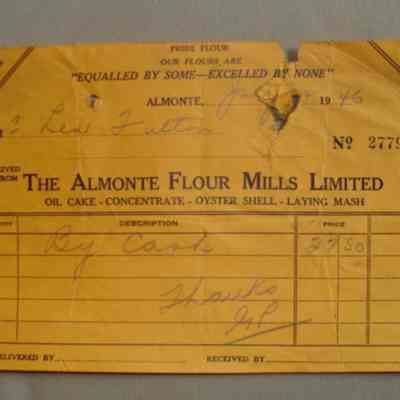 PRIDE FLOUR
OUR FLOURS ARE
"EQUALLED BY SOME—EXCELLED BY NONE"
ALMONTE, 1946
Len Fulton
No 2779
FROM THE ALMONTE FLOUR MILLS LIMITED
OIL CAKE - CONCENTRATE - OYSTER SHELL - LAYING MASH
DESCRIPTION PRICE
By Cash 37 50
Thanks
DELIVERED BY RECEIVED BY